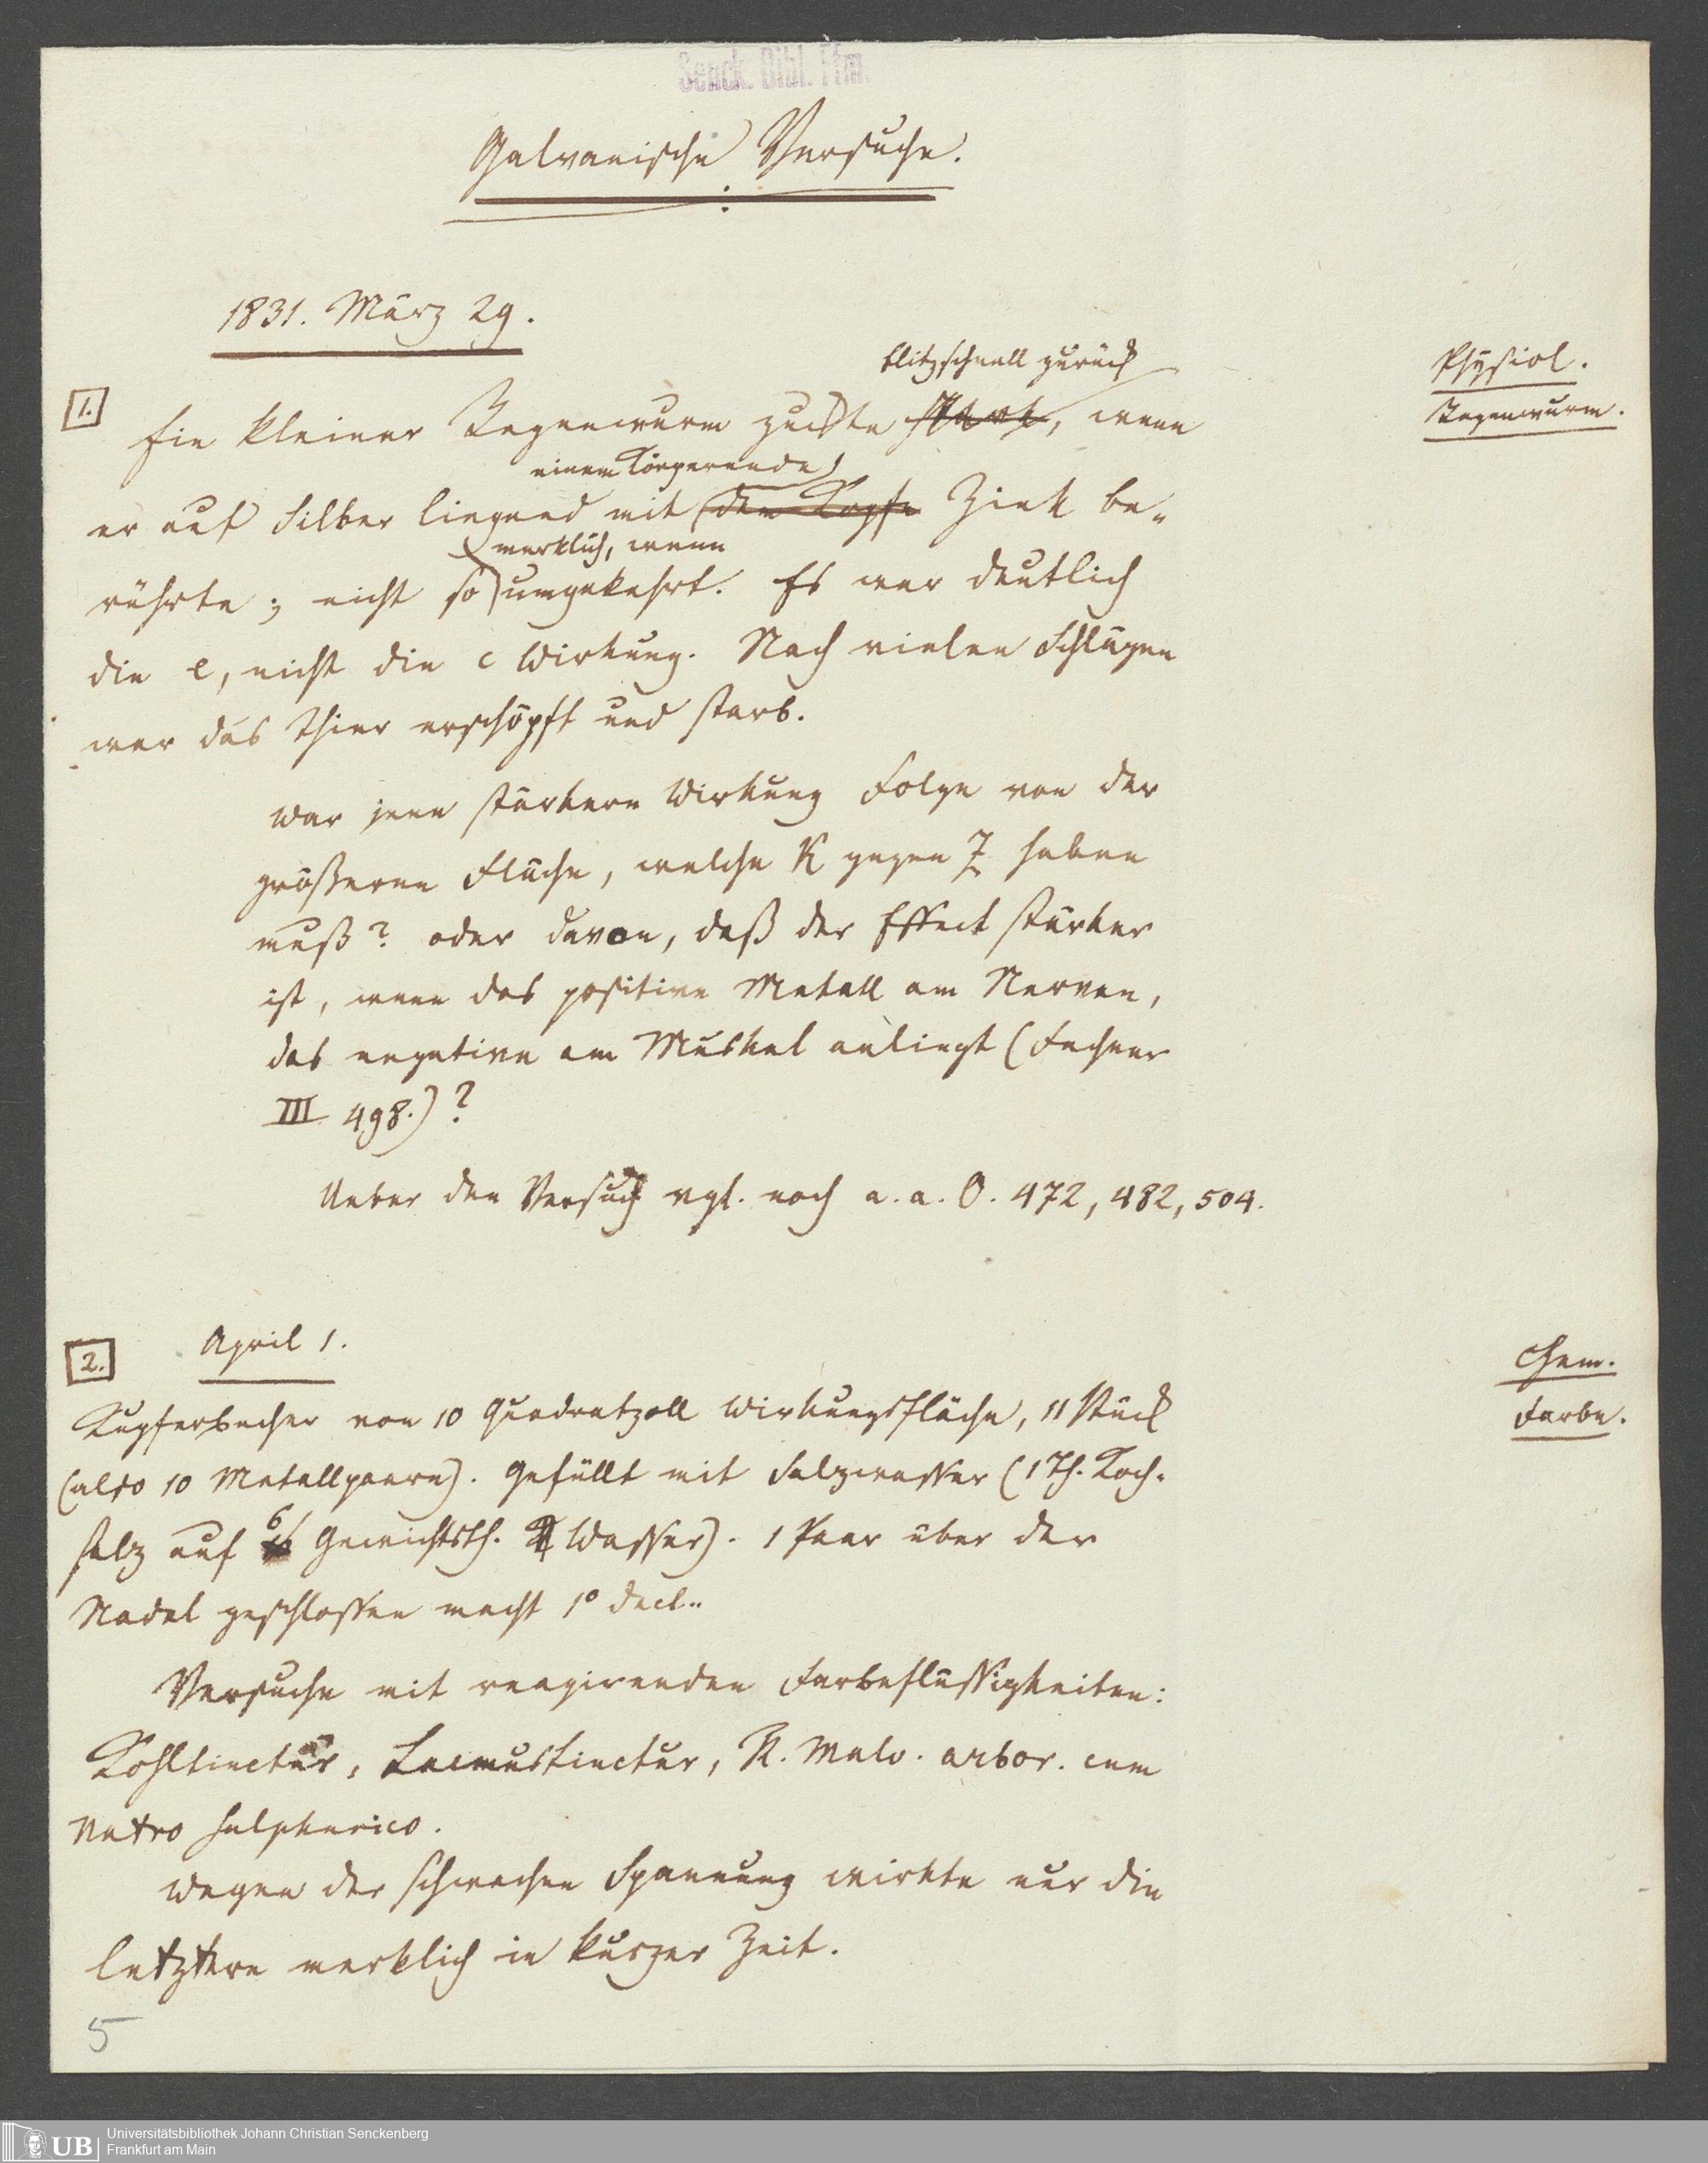 Senck. Bibl. Ffm.
Galvanische Versuche.
1831. März 29.
blitzschnell zurück
Physiol.
1.
Ein kleiner Regenwurm zuckte stark, wenn
Regenwurm.
einem Körperende
er auf Silber liegend mit dem Kopfe Zink be-
merklich, wenn
rührte; nicht so umgekehrt. Es war deutlich
die e, nicht die c Wirkung. Nach vielen Schlägen
war das Thier erschöpft und starb.
War jene stärkere Wirkung Folge von der
größeren Fläche, welche K gegen Z haben
muß? oder davon, daß der Effect stärker
ist, wenn das positive Metall am Nerven,
das negative am Muskel anliegt (Fechner
III 498.)?
Ueber den Versuch vgl. noch a. a. O. 472, 482, 504.
2.
April 1.
Chem.
Kupferbecher von 10 Quadratzoll Wirkungsfläche, 11 Stück
Farbe.
(also 10 Metallpaare). Gefüllt mit Salzwasser (1 Th. Koch-
salz auf 6 Gewichtsth. Wasser). 1 Paar über der
Nadel geschlossen macht 1° decl..
Versuche mit reagirenden Farbeflüssigkeiten:
Kohltinctur, Lacmustinctur, R. Malv. arbor. cum
Natro sulphurico.
Wegen der schwachen Spannung wirkte nur die
letztere merklich in kurzer Zeit.
5
UB
Universitätsbibliothek Johann Christian Senckenberg
Frankfurt am Main